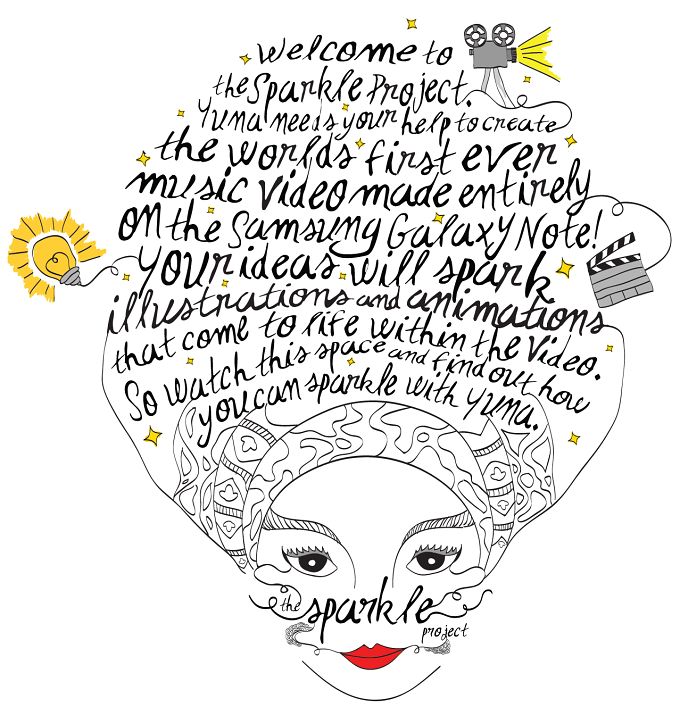 welcome to
the Sparkle Project.
Yuna needs your help to create
the worlds first ever
music video made entirely
on the Samsung Galaxy Note!
your ideas will spark
illustrations and animations
that come to life within the video.
So watch this space and find out how
you can sparkle with Yuna.
the sparkle
project